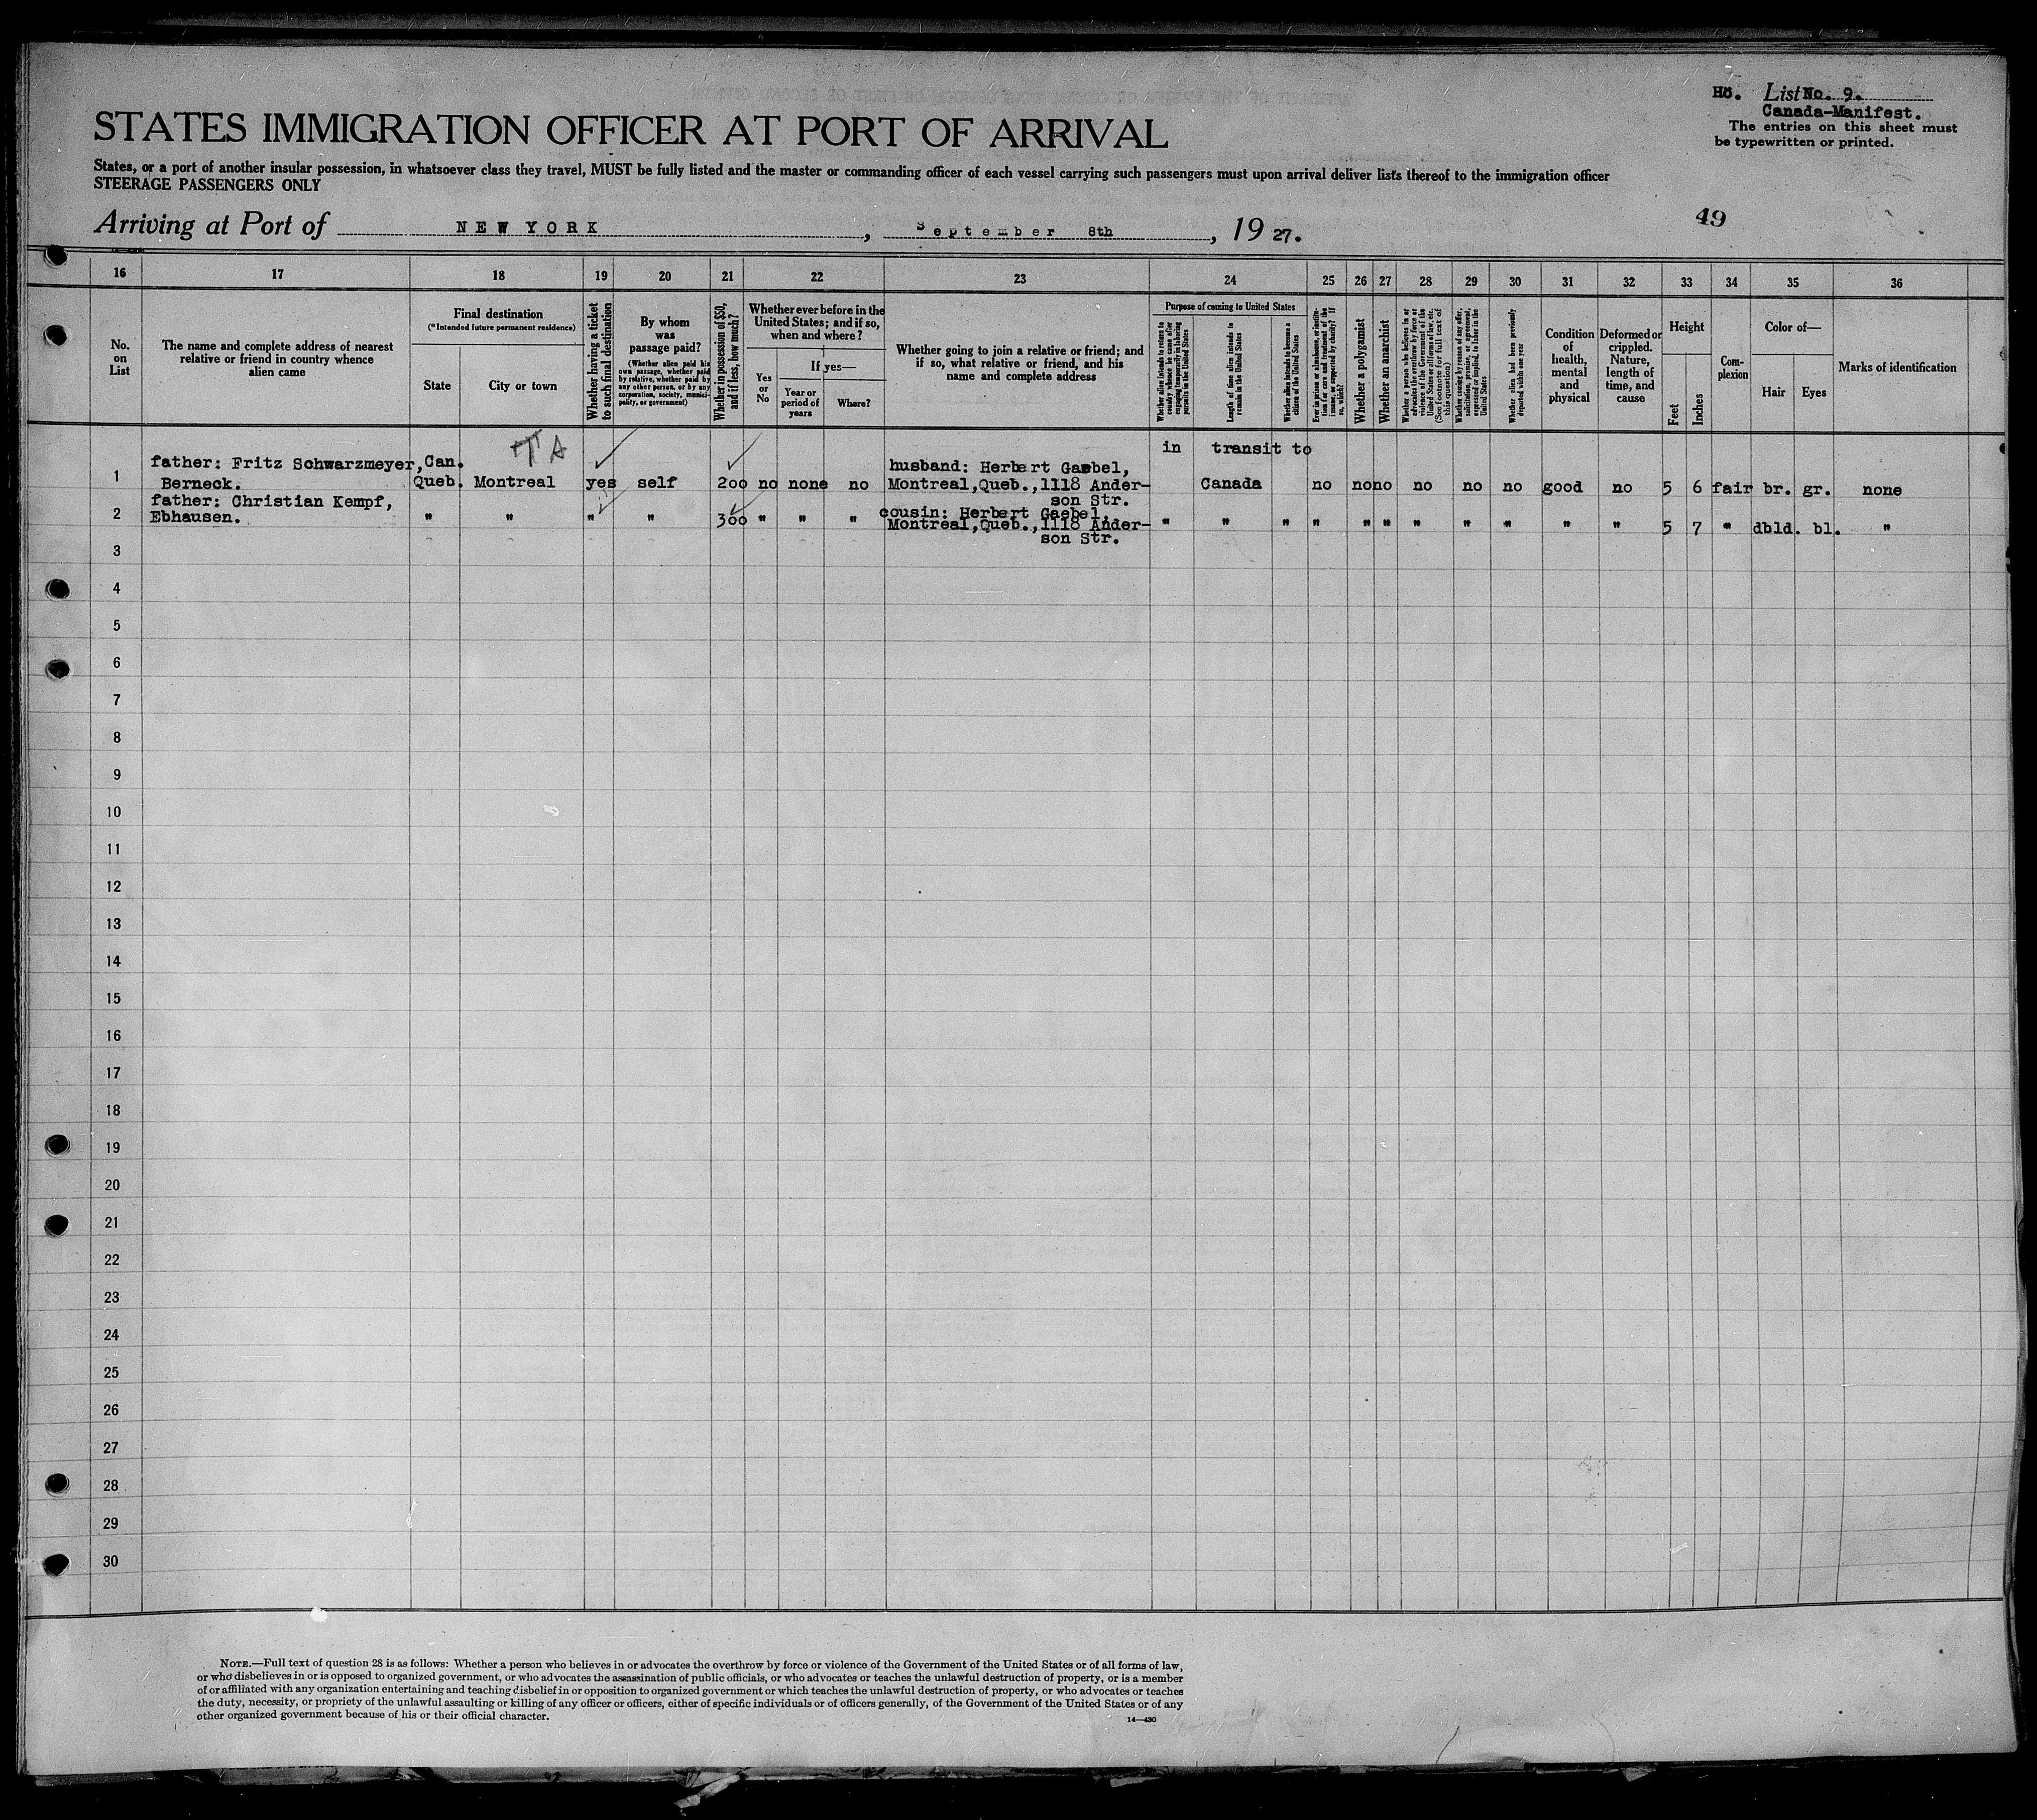 Ho. List No. 9.
Canada-Manifest.
The entries on this sheet must
be typewritten or printed.
STATES IMMIGRATION OFFICER AT PORT OF ARRIVAL
States, or a port of another insular possession, in whatsoever class they travel, MUST be fully listed and the master or commanding officer of each vessel carrying such passengers must upon arrival deliver lists thereof to the immigration officer
STEERAGE PASSENGERS ONLY
Arriving at Port of NEW YORK, September 8th, 1927.
49
16 17 18 19 20 21 22 23 24 25 26 27 28 29 30 31 32 33 34 35 36
No. on List
The name and complete address of nearest
relative or friend in country whence
alien came
Final destination
(*Intended future permanent residence)
State
City or town
Whether having a ticket to such final destination
By whom
was
passage paid?
(Whether alien paid his
own passage, whether paid
by relative, whether paid by
any other person, or by any
corporation, society, munici-
pality, or government)
Whether in possession of $50, and if less, how much?
Whether ever before in the
United States; and if so,
when and where?
Yes or No
If yes—
Year or period of years
Where?
Whether going to join a relative or friend; and
if so, what relative or friend, and his
name and complete address
Purpose of coming to United States
Whether alien intends to return to country whence he came after engaging temporarily in laboring pursuits in the United States
Length of time alien intends to remain in the United States
Whether alien intends to become a citizen of the United States
Ever in prison or almshouse, or institution for care and treatment of the insane, or supported by charity? If so, which?
Whether a polygamist
Whether an anarchist
Whether a person who believes in or advocates the overthrow by force or violence of the Government of the United States or all forms of law, etc. (See footnote for full text of this question)
Whether coming by reason of any offer, solicitation, promise, or agreement, expressed or implied, to labor in the United States
Whether alien had been previously deported within one year
Condition of health, mental and physical
Deformed or crippled. Nature, length of time, and cause
Height
Feet
Inches
Com-
plexion
Color of—
Hair
Eyes
Marks of identification
TA
in transit to
1 father: Fritz Schwarzmeyer, Can. husband: Herbert Gaebel,
Berneck. Queb. Montreal yes self 200 no none no Montreal,Queb.,1118 Ander- Canada no no no no no no good no 5 6 fair br. gr. none
son Str.
2 father: Christian Kempf, cousin: Herbert Gaebel,
Ebhausen. " " " " 300 " " " Montreal,Queb.,1118 Ander- " " " " " " " " " " " 5 7 " dbld. bl. "
son Str.
3
4
5
6
7
8
9
10
11
12
13
14
15
16
17
18
19
20
21
22
23
24
25
26
27
28
29
30
NOTE.—Full text of question 28 is as follows: Whether a person who believes in or advocates the overthrow by force or violence of the Government of the United States or of all forms of law,
or who disbelieves in or is opposed to organized government, or who advocates the assassination of public officials, or who advocates or teaches the unlawful destruction of property, or is a member
of or affiliated with any organization entertaining and teaching disbelief in or opposition to organized government or which teaches the unlawful destruction of property, or who advocates or teaches
the duty, necessity, or propriety of the unlawful assaulting or killing of any officer or officers, either of specific individuals or of officers generally, of the Government of the United States or of any
other organized government because of his or their official character.
14—430